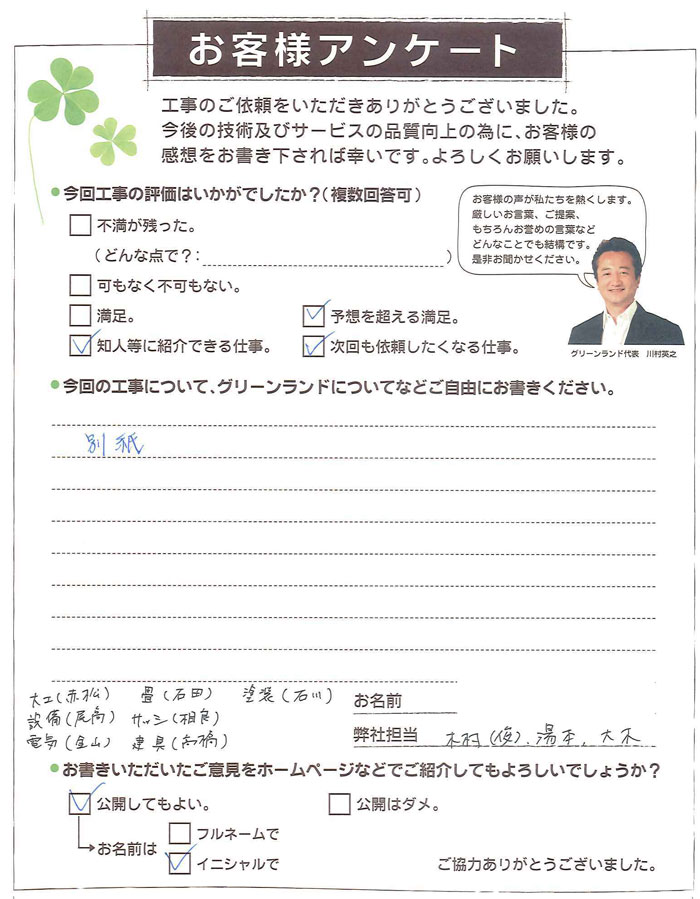 お客様アンケート
工事のご依頼をいただきありがとうございました。
今後の技術及びサービスの品質向上の為に、お客様の
感想をお書き下されば幸いです。よろしくお願いします。
今回工事の評価はいかがでしたか？（複数回答可）
不満が残った。
（どんな点で？：　　　）
可もなく不可もない。
満足。
予想を超える満足。
知人等に紹介できる仕事。
次回も依頼したくなる仕事。
お客様の声が私たちを熱くします。
厳しいお言葉、ご提案、
もちろんお誉めの言葉など
どんなことでも結構です。
是非お聞かせください。
グリーンランド代表　川村英之
今回の工事について、グリーンランドについてなどご自由にお書きください。
別紙
大工(赤松)　畳(石田)　塗装(石川)
設備(尾高)　サッシ(相良)
電気(金山)　建具(高橋)
お名前
弊社担当　木村(俊)、湯本、大木
お書きいただいたご意見をホームページなどでご紹介してもよろしいでしょうか？
公開してもよい。
公開はダメ。
お名前は
フルネームで
イニシャルで
ご協力ありがとうございました。